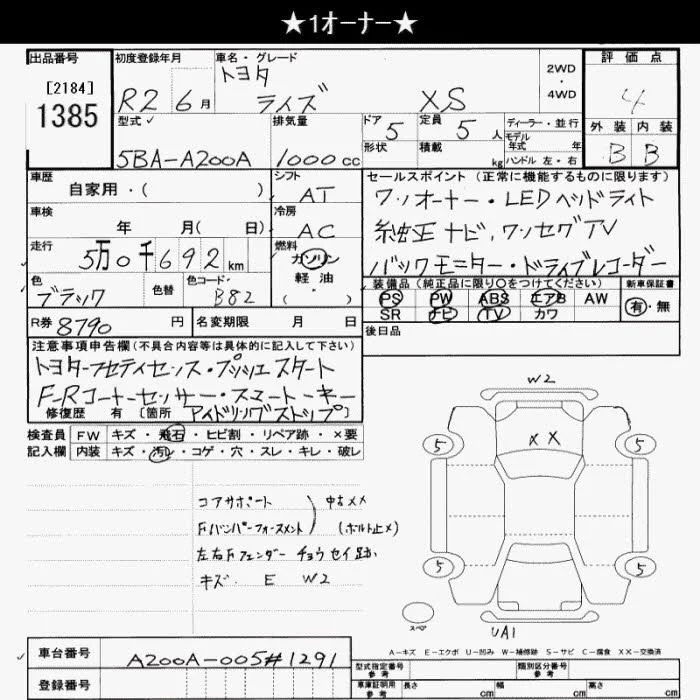 ★1オーナー★
出品番号
[2184]
1385
初度登録年月
R2 6月
車名・グレード
トヨタ
ライズ XS
2WD
・
4WD
評価点
4
外装 内装
B B
型式
5BA-A200A
排気量
1000cc
ドア 5
定員 5人
形状
積載 kg
ディーラー・並行
モデル年式 年
ハンドル 左・右
車歴
自家用・( )
シフト
AT
セールスポイント (正常に機能するものに限ります)
ワンオーナー・LEDヘッドライト
純正ナビ,ワンセグTV
バックモニター・ドライブレコーダー
車検
年 月( 日)
冷房
AC
走行
5万0千692km
燃料
ガソリン
軽油
( ・ )
色
ブラック
色替
色コード・
B82
装備品(純正品に限り○をつけてください)
PS PW ABS エアB AW
SR ナビ TV カワ
新車保証書
有・無
R券 8790 円
名変期限 月 日
後日品
注意事項申告欄(不具合内容等は具体的に記入して下さい)
トヨタセーフティセンス・プッシュスタート
F-Rコーナーセンサー・スマートキー
修復歴 有 [箇所 アイドリングストップ]
検査員
記入欄
FW キズ・飛石・ヒビ割・リペア跡・×要
内装 キズ・汚レ・コゲ・穴・スレ・キレ・破レ
コアサポート
Fバンパーフォースメント
中古××
(ボルト止メ)
左右Fフェンダー チョウセイ跡
キズ E W2
W2
X X
5
5
5
5
スペア
UA1
A-キズ E-エクボ U-凹み W-補修跡 S-サビ C-腐食 XX-交換済
車台番号
A200A-005#1291
登録番号
型式指定番号
参考
類別区分番号
参考
車庫証明用
参考
長さ cm
幅 cm
高さ cm